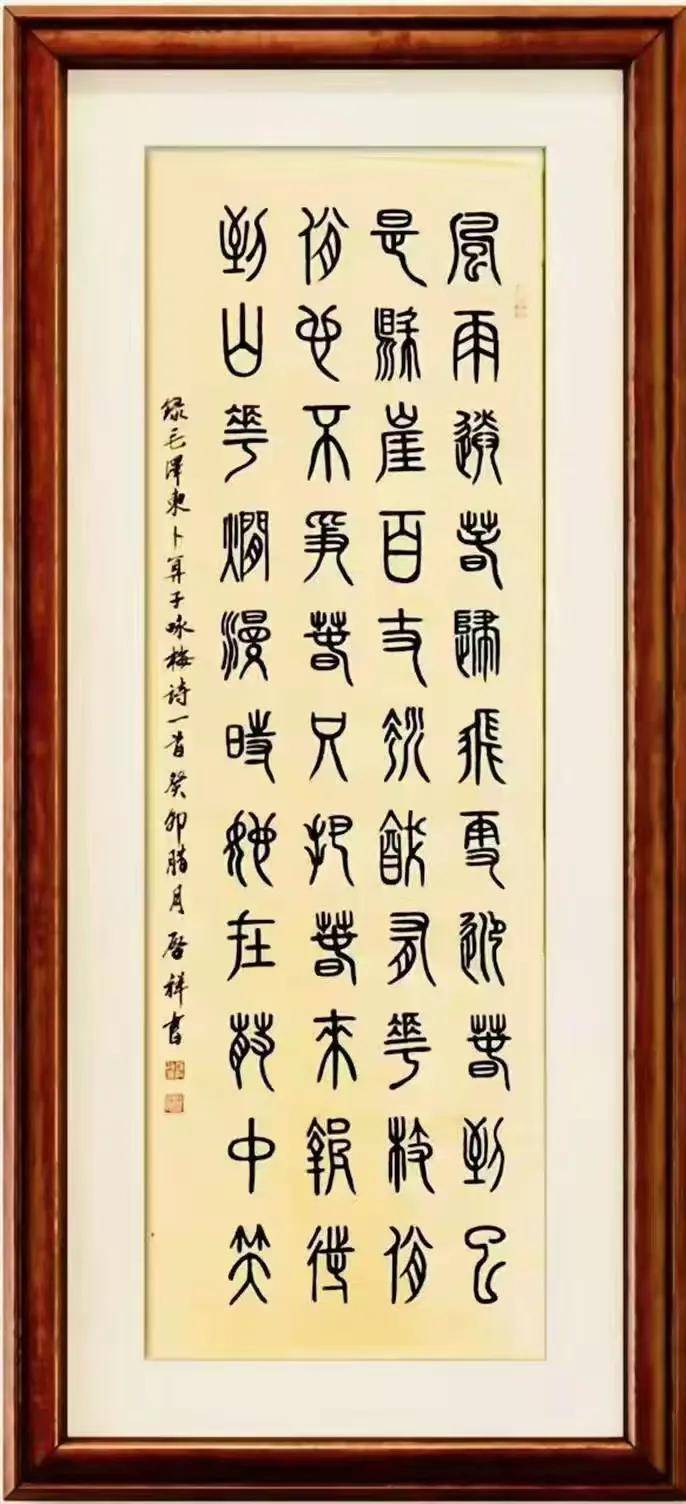 風雨送春歸飛雪迎春到已
是縣崖百丈冰猶有花枝俏
俏也不爭春只把春來報待
到山花爛漫時她在叢中笑
録毛澤東卜算子咏梅诗一首癸卯腊月啓祥書